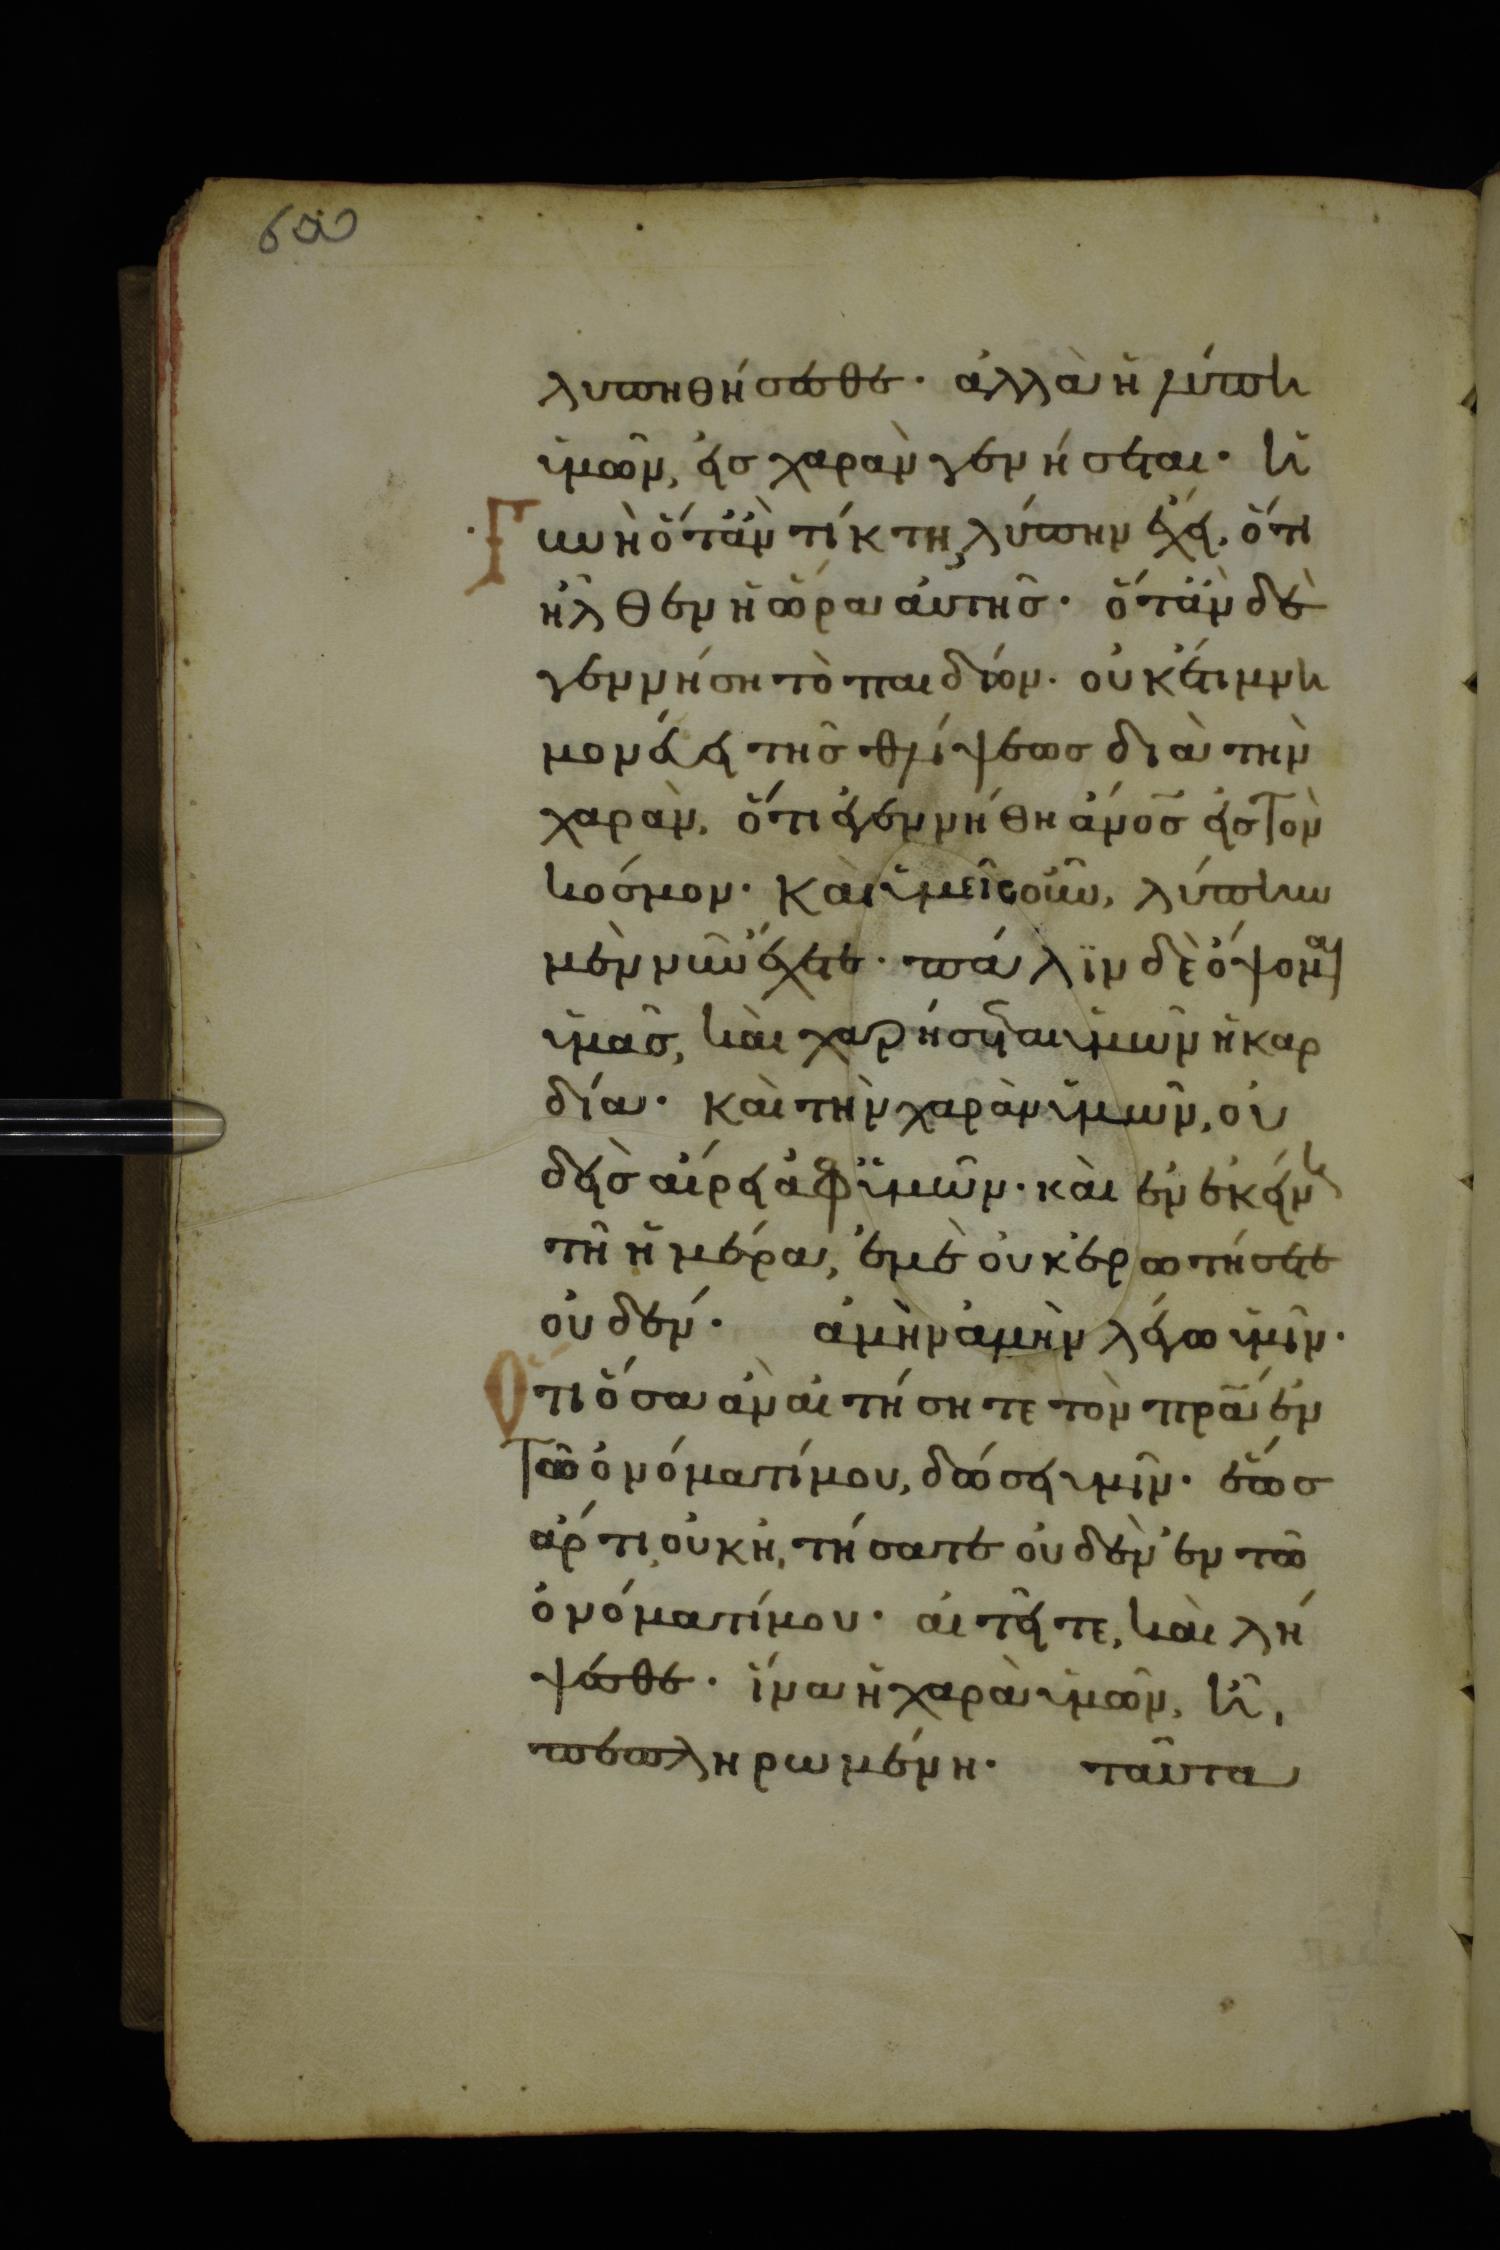 λυπηθήσεσθε· ἀλλὰ ἡ λύπη
ὑμῶν, εἰς χαρὰν γενήσεται· ἡ
Γυνὴ ὅτὰν τίκτη, λύπην ἔχει, ὅτι
ἦλθεν ἡ ὥρα αὐτῆς· ὅτὰν δὲ
γεννήση τὸ παιδίον· οὐκέτι μνη
μονεύει τῆς θλίψεως διὰ τὴν
χαρὰν, ὅτι ἐγεννήθη ἄνος εἰς τὸν
κόσμον· καὶ ὑμεῖς οὖν, λύπην
μὲν νῦν ἔχετε· πάλϊν δὲ ὄψομαι
ὑμᾶς, καὶ χαρήσεται ὑμῶν ἡ καρ
δία· καὶ τὴν χαρὰν ὑμῶν, οὐ
δεὶς αἴρει ἀφ ὑμῶν· καὶ ἐν ἐκείνη
τῆ ἡμέρα, ἐμὲ οὐκ ἐρωτήσετε
οὐδέν· ἀμὴν ἀμὴν λέγω ὑμῖν·
Ὅτι ὅσα ἀν αἰτήσητε τὸν πρα ἐν
τῶ ὀνόματί μου, δώσει ὑμῖν· ἕως
ἄρτι, οὐκ ἠτήσατε οὐδὲν ἐν τῶ
ὀνόματί μου· αἰτεῖτε, καὶ λή
ψεσθε· ἵνα ἡ χαρὰ ὑμῶν, ἦ,
πεπληρωμένη· ταῦτα